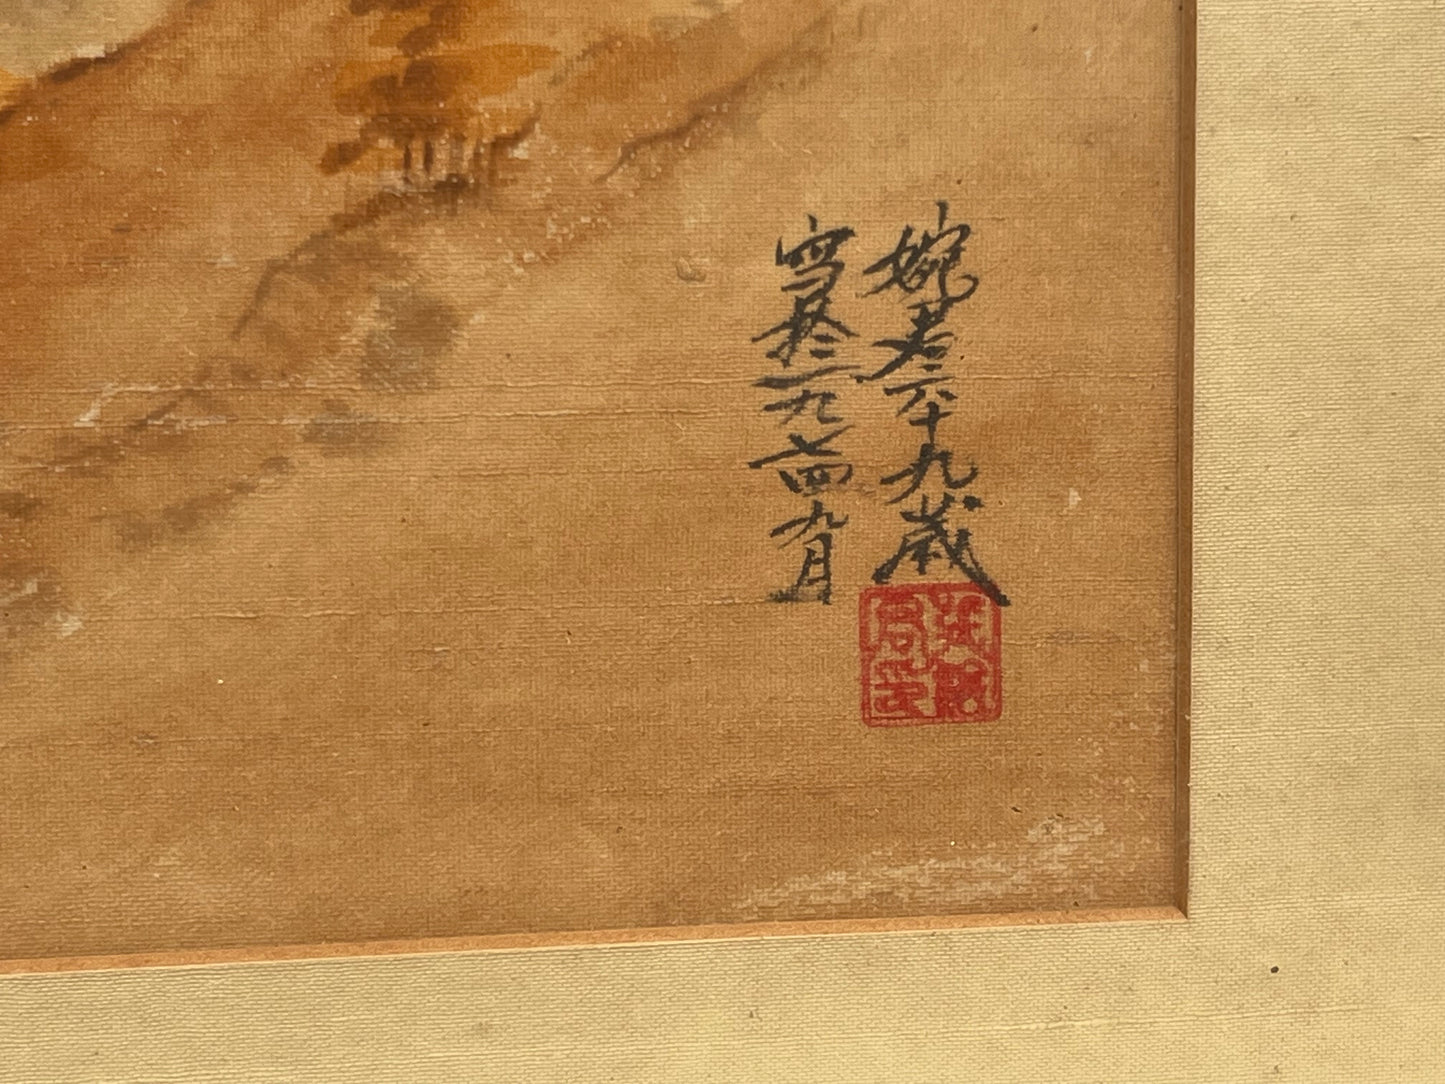 婉君六十九歲
寫於一九七四九月